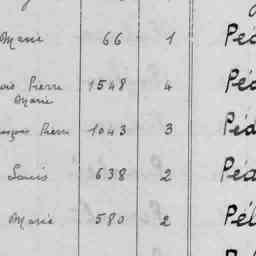 Marie 66 1 Péd
Pierre 1548 4 Péd
Marie
Pierre 1043 3 Péd
Louis 638 2 Péd
Marie 580 2 Pél